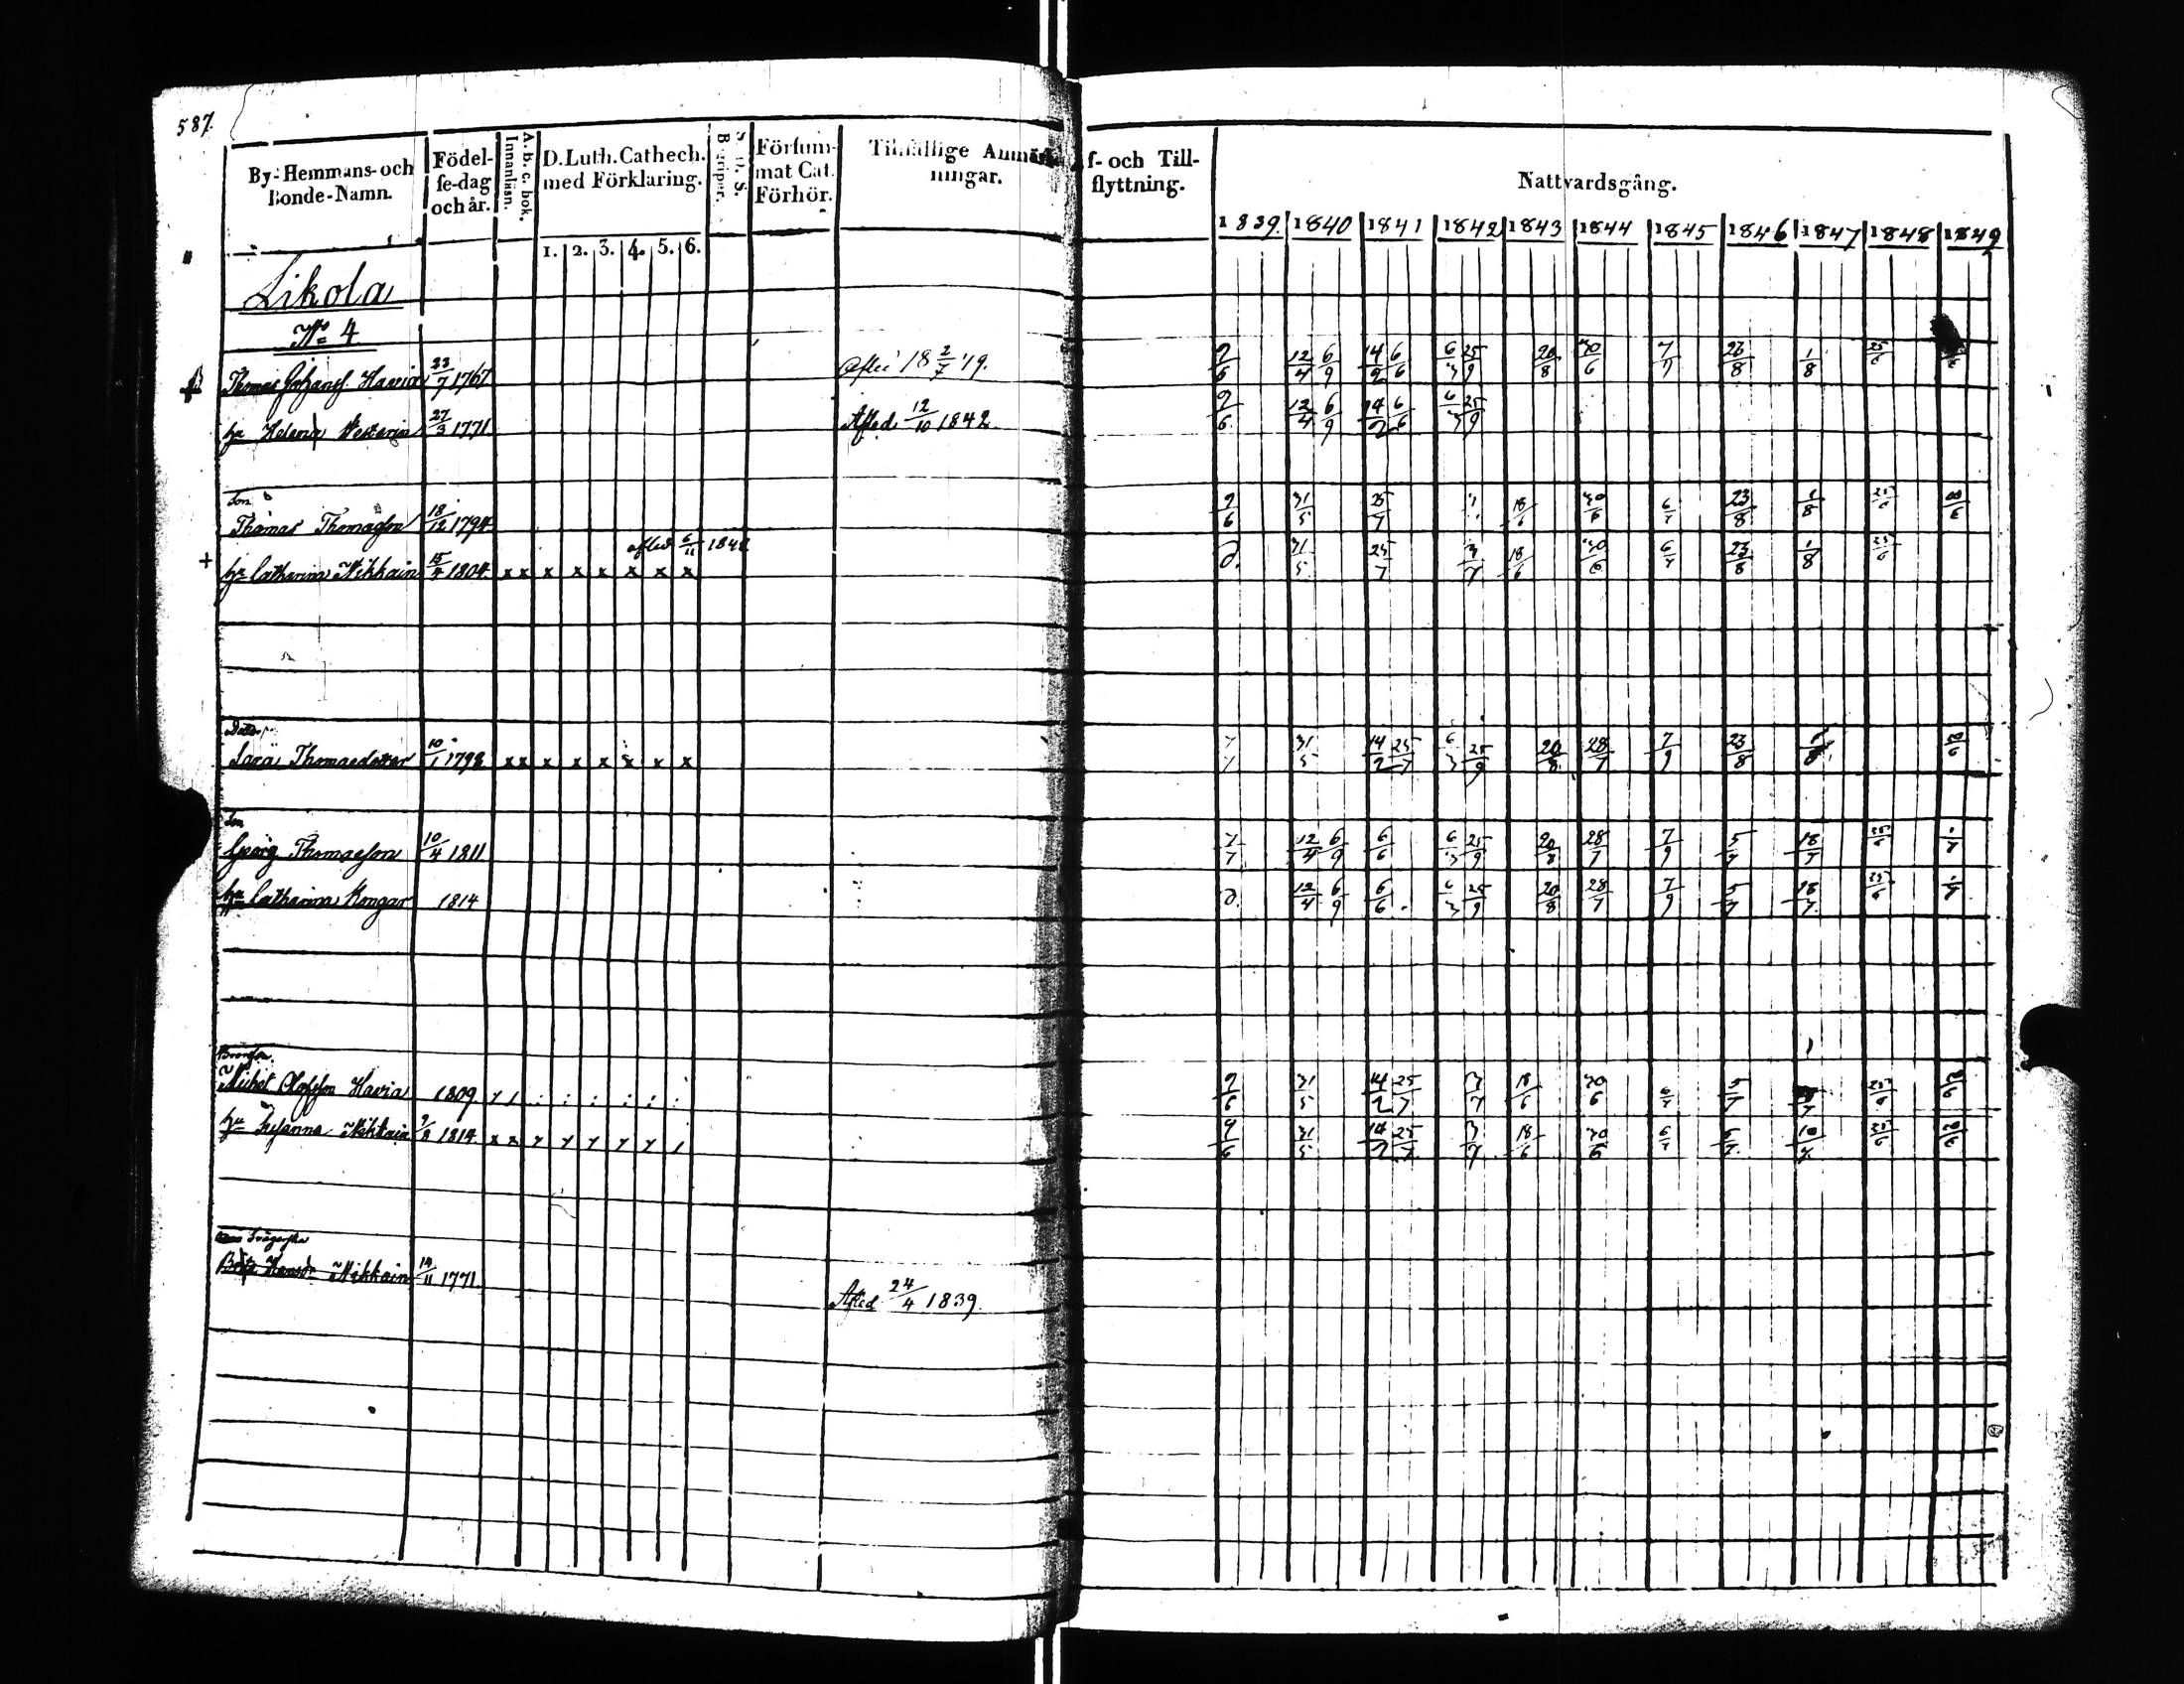 587.
By- Hemmans- och Bonde-Namn.
Födel- se-dag och år.
A. b. c. bok. Innanläsn.
D. Luth. Cathech. med Förklaring.
1. 2. 3. 4. 5. 6.
Försum- mat Cat. Förhör.
Tillfällige Anmärk ningar.
f- och Till- flyttning.
Nattvardsgång.
1839. 1840 1841 1842 1843 1844 1845 1846 1847 1848 1849
Likola
No 4
Thomas Johans. Havia 23/7 1767 2/6 12/4 6/9 14/2 6/6 6/3 25/9 20/8 30/6 7/9 23/8 1/8 25/6
hu Helena Westerin 27/3 1771 Afled 12/10 1842 2/6 12/4 6/9 14/2 6/6 6/3 25/9
Son
Thomas Thomasson 18/12 1794 2/6 31/5 25/7 18/6 30/6 6/7 23/8 1/8 25/6
afled 6/11 1848
+ hu Catharina Nikkain 15/4 1804 x x x x x x x x d. 31/5 25/7 3/7 18/6 30/6 6/7 23/8 1/8 25/6
Dotter
Sara Thomaedotter 10/1 1798 x x x x x x x x 31/5 14/2 25/7 6/3 25/9 20/8 28/7 7/9 23/8
Son
Georg Thomasson 10/4 1811 7/7 12/4 6/9 6/6 6/3 25/9 20/8 28/7 7/9 5/7 18/7 25/6
hu Catharina Kongar 1814 d. 12/4 6/9 6/6 6/3 25/9 20/8 28/7 7/9 5/7 18/7 25/6
Brorson
Michel Olofsson Havia 1809 2/6 31/5 14/2 25/7 3/7 18/6 30/6 6/7 5/7 25/6
hu Susanna Nikkain 2/8 1814 2/6 31/5 14/2 25/7 3/7 18/6 30/6 6/7 5/7 18/7 25/6
Svägerska
Brita Hansdr Nikkain 14/11 1771.
Afled 24/4 1839.